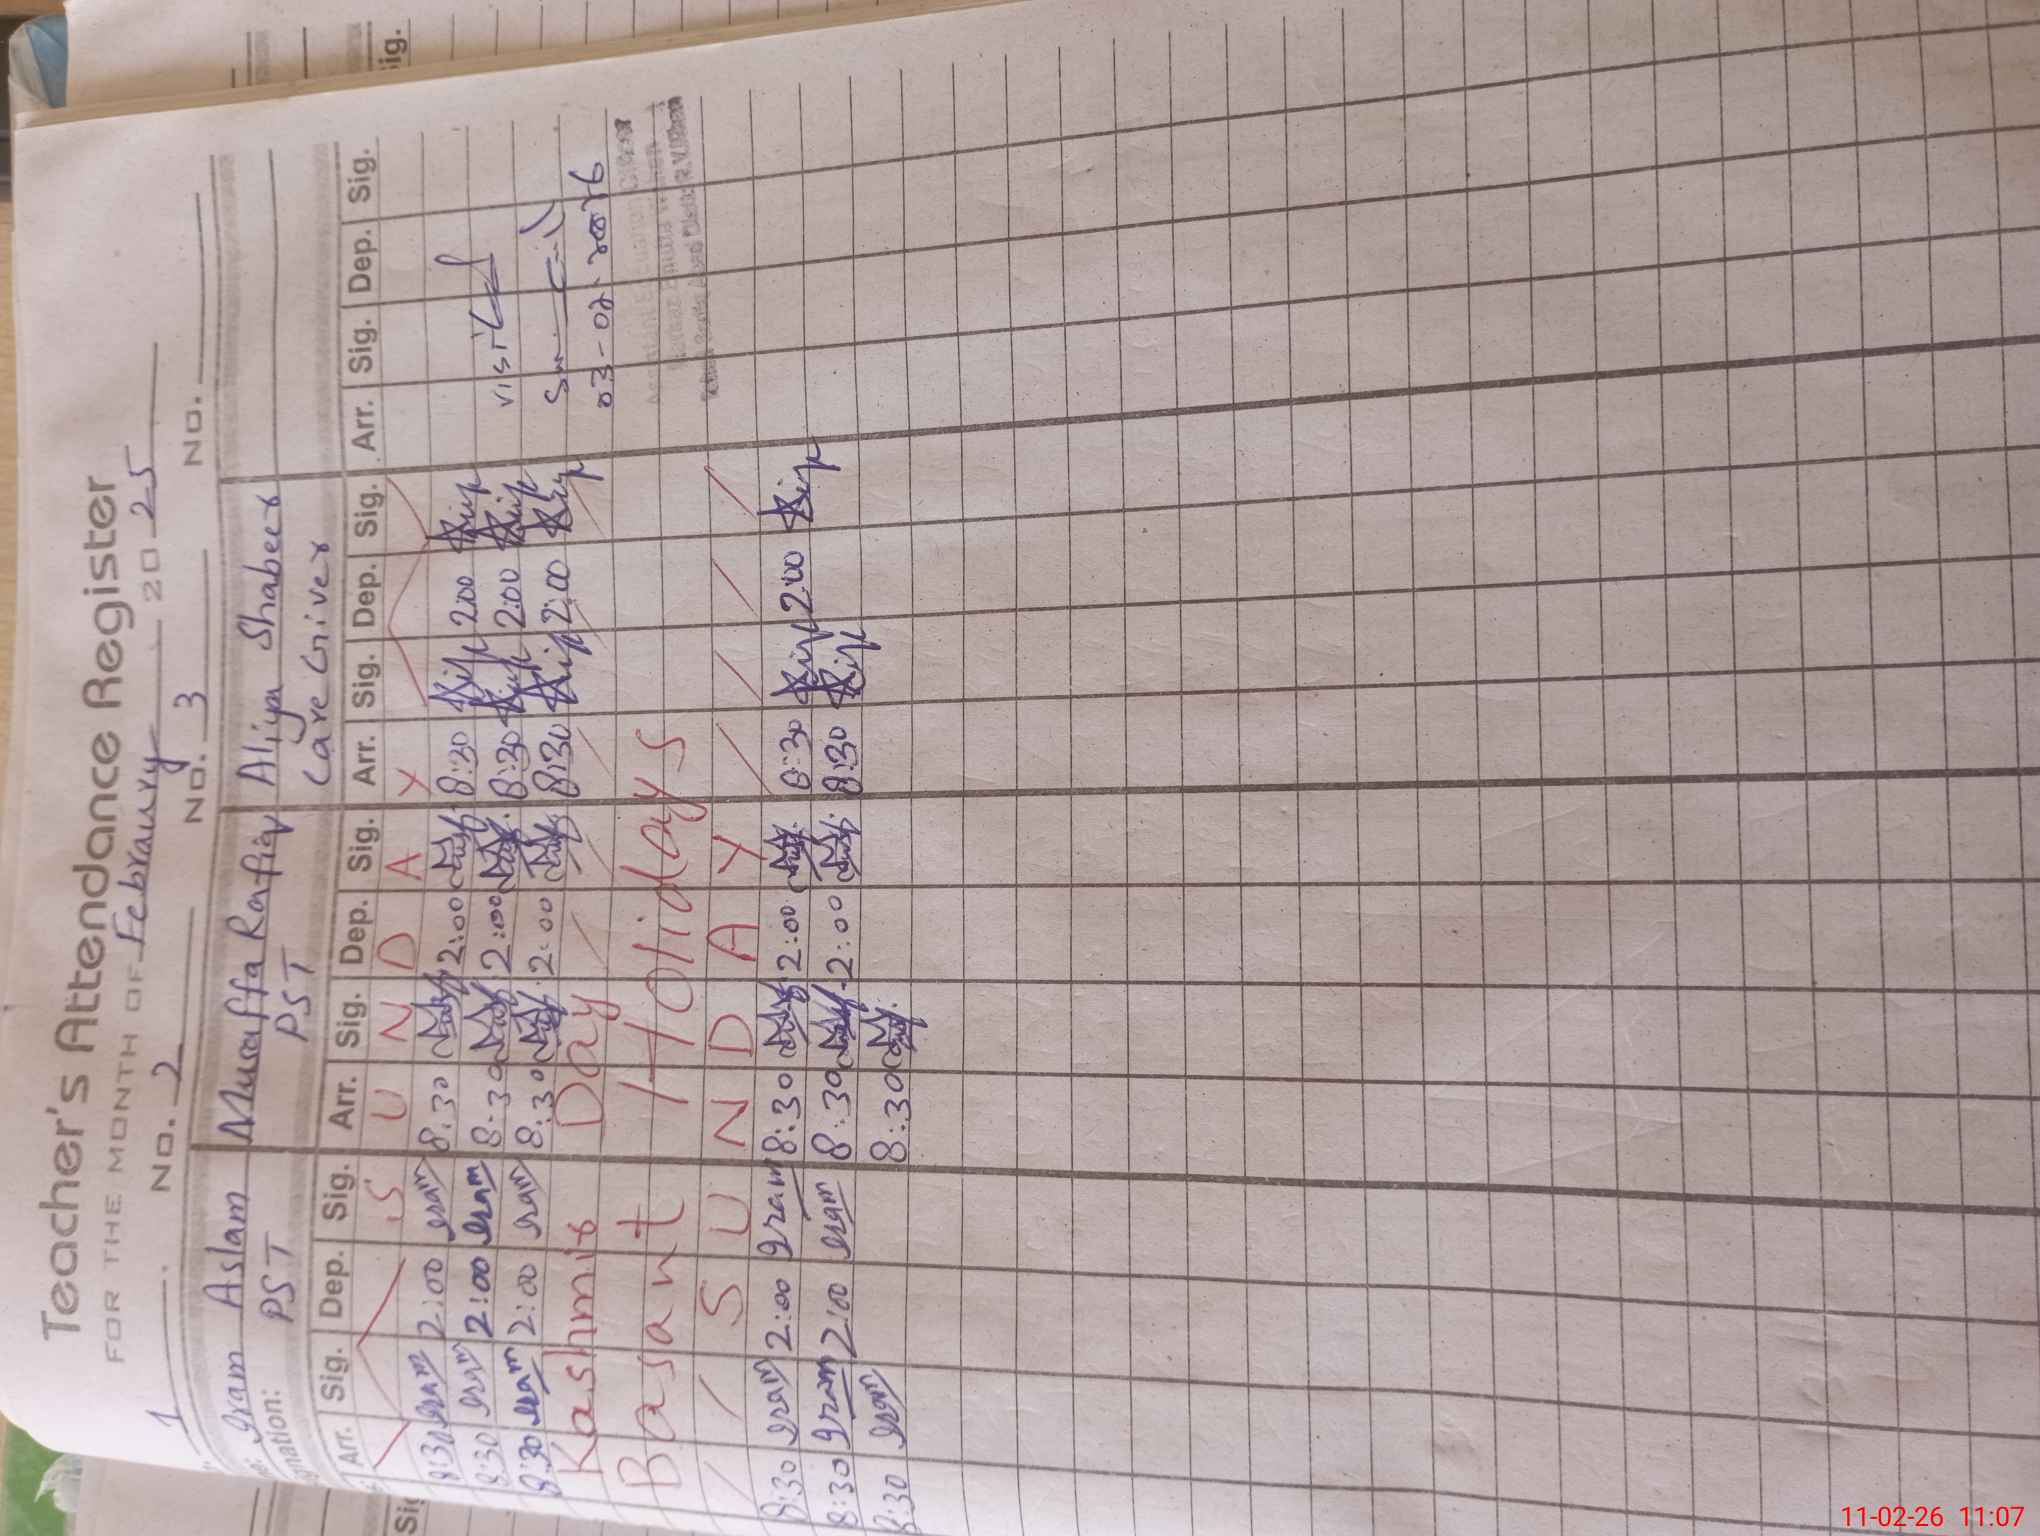 Teacher's Attendance Register
FOR THE MONTH OF February 2025
1 No. 2 No. 3 No.
Iram Aslam Musaffa Rafiq Aliya Shabeer
gnation: PST PST Care Giver
Arr. Sig. Dep. Sig. Arr. Sig. Dep. Sig. Arr. Sig. Dep. Sig. Arr. Sig. Dep. Sig.
S U N D A Y
8:30 Iram 2:00 Iram 8:30 2:00 8:30 2:00
8:30 Iram 2:00 Iram 8:30 2:00 8:30 2:00 visited
8:30 Iram 2:00 Iram 8:30 2:00 8:30 2:00
Kashmir Day 03-02-2026
Basant Holidays
S U N D A Y
8:30 Iram 2:00 Iram 8:30 2:00 8:30 2:00
8:30 Iram 2:00 Iram 8:30 2:00 8:30
8:30 Iram 8:30
Sig.
Sig
11-02-26 11:07